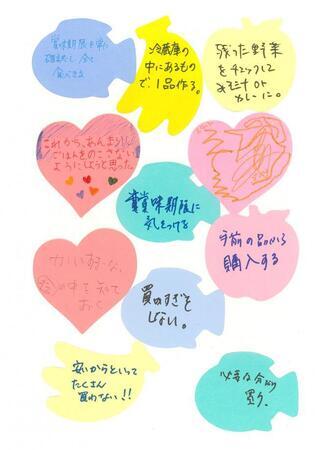 賞味期限を常に
確認し、全て
食べきる
冷蔵庫の
中にあるもの
で、1品作る。
残った野菜
をチェックして
みそ汁 or
カレーに。
これから、あんまり
ごはんをのこさない
ようにしようと思った
賞味期限に
気をつける
手前の品から
購入する
かいすぎない
の中を知って
おく
買いすぎを
しない。
安いからといって
たくさん
買わない!!
必要な分のみ
買う。